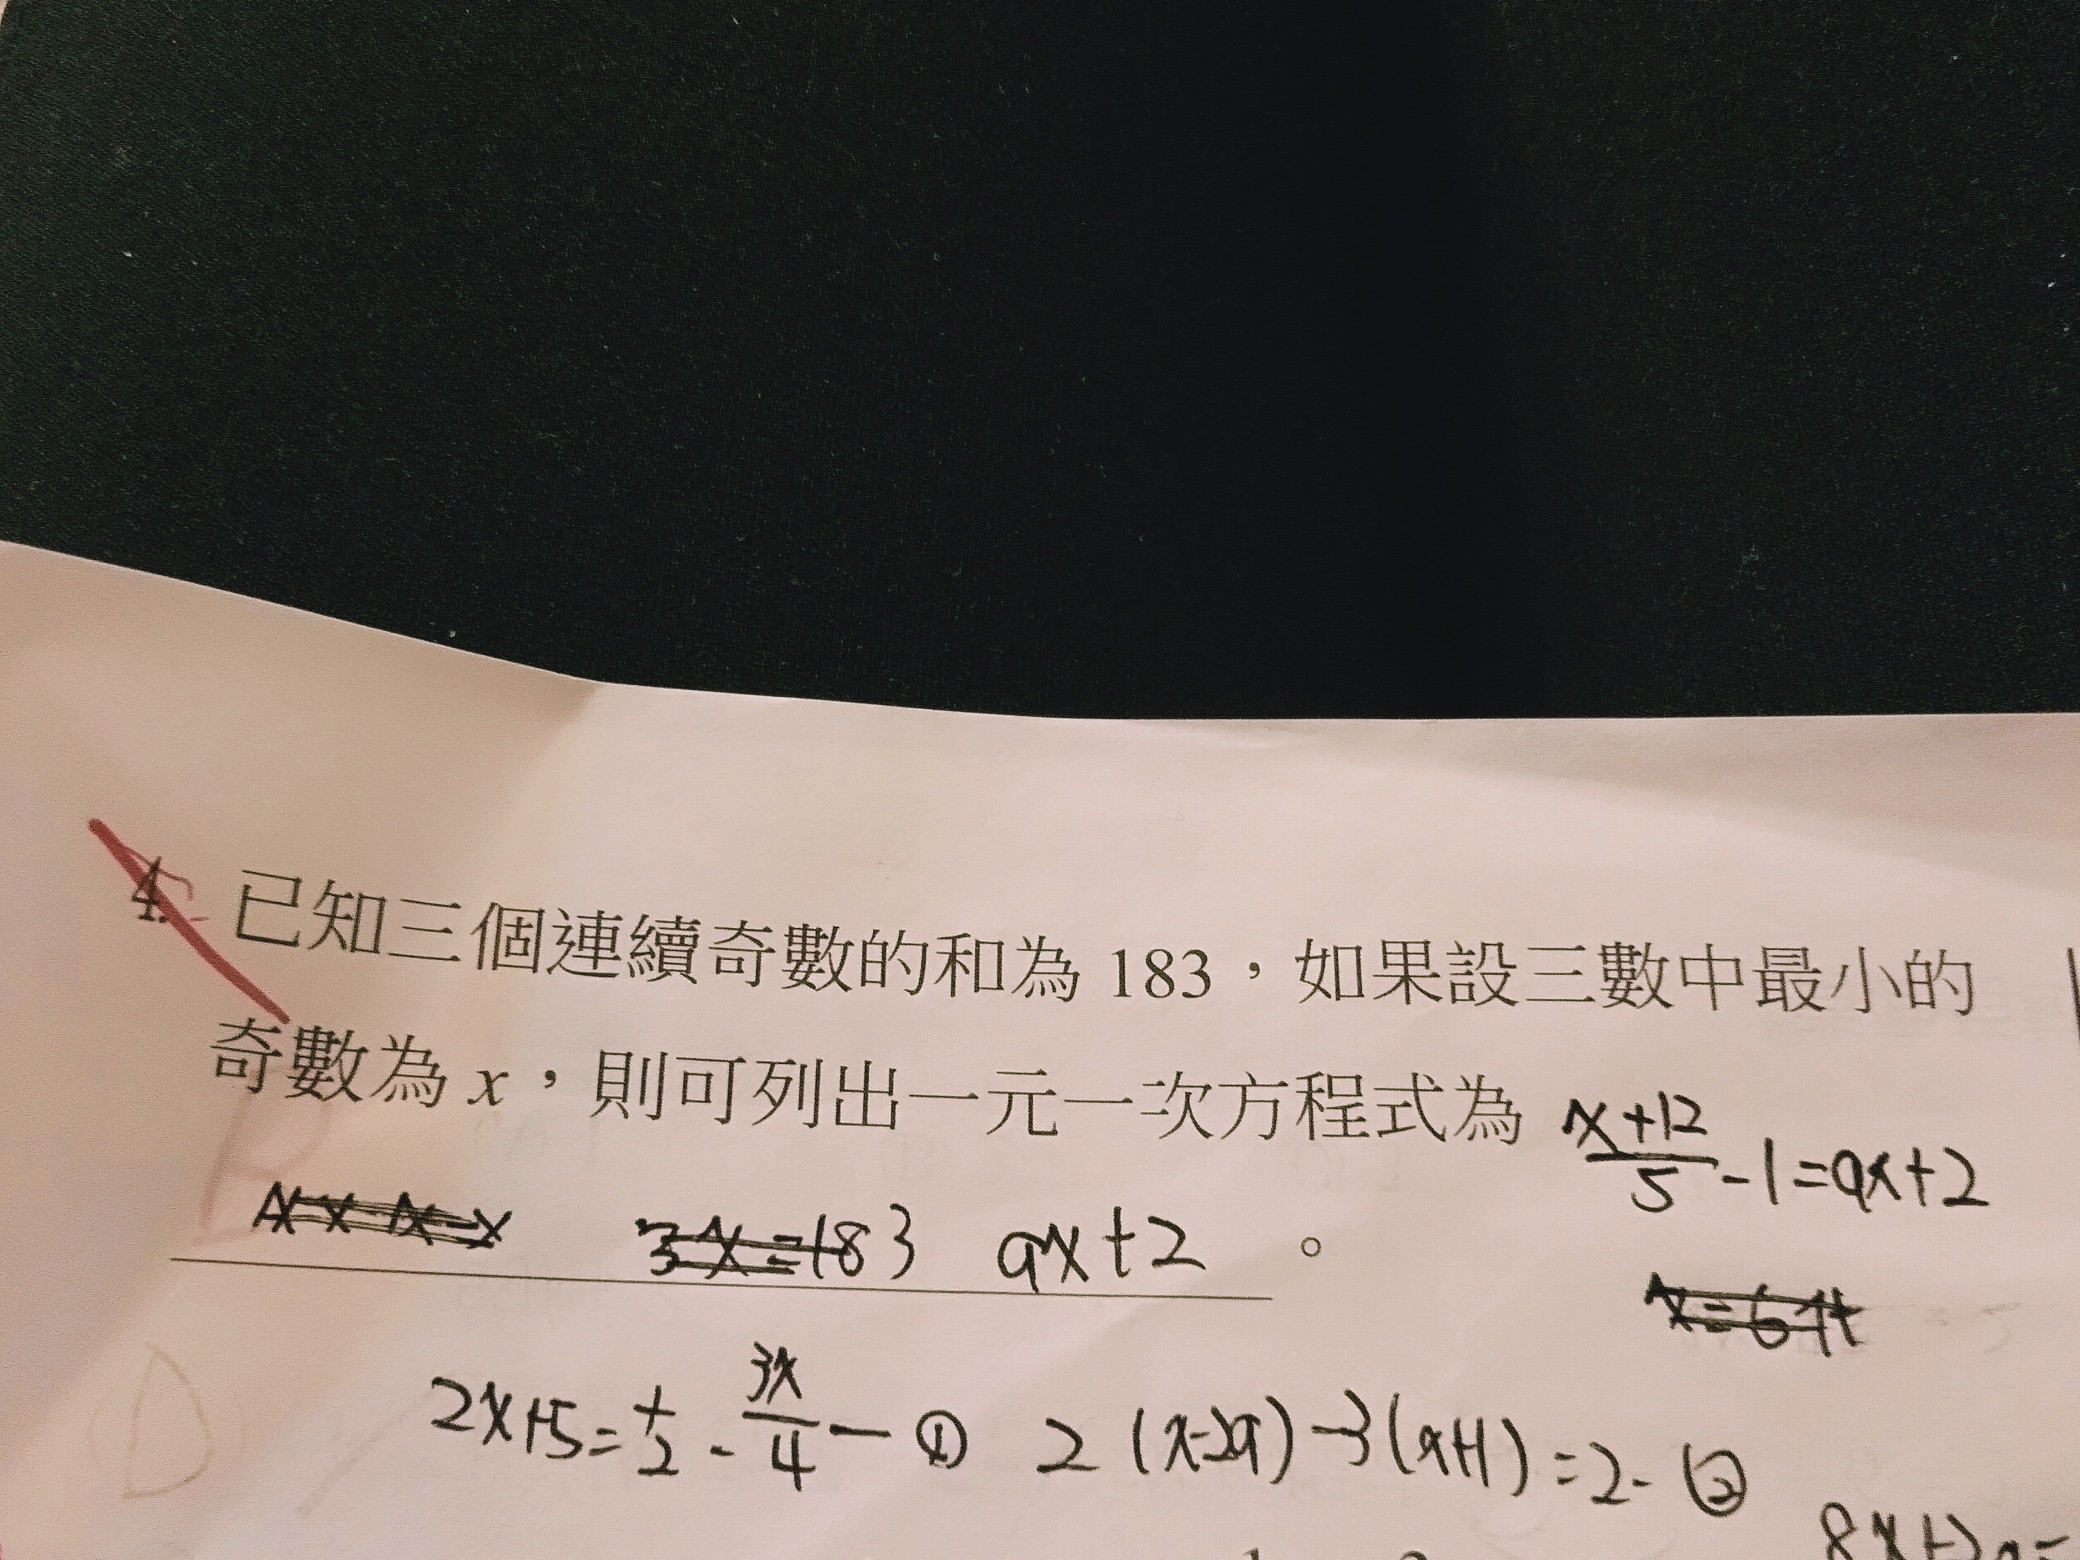 4. 已知三個連續奇數的和為 183，如果設三數中最小的
奇數為 x，則可列出一元一次方程式為
x+12/5 -1=ax+2
3x=183 ax+2 。
2x+5=1/2-3x/4-① 2(x-2a)-3(x+1)=2-②